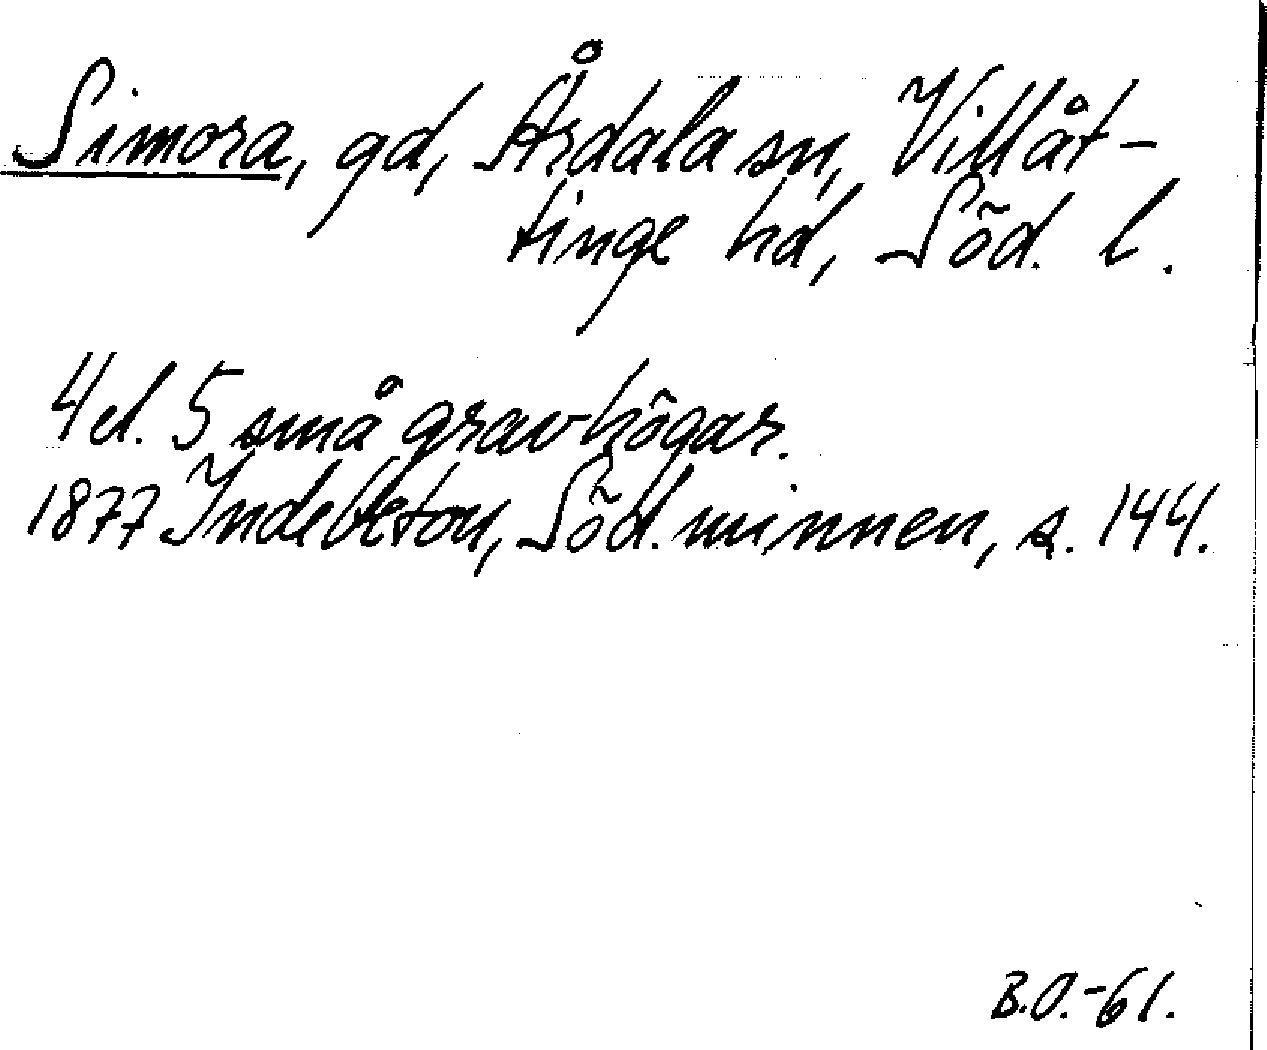 Simora, gd, Årdala sn, Villåt-
tinge hd, Söd. l.
4 el. 5 små gravhögar.
1877 Indebetou, Söd. minnen, s. 144.
B.O.-61.